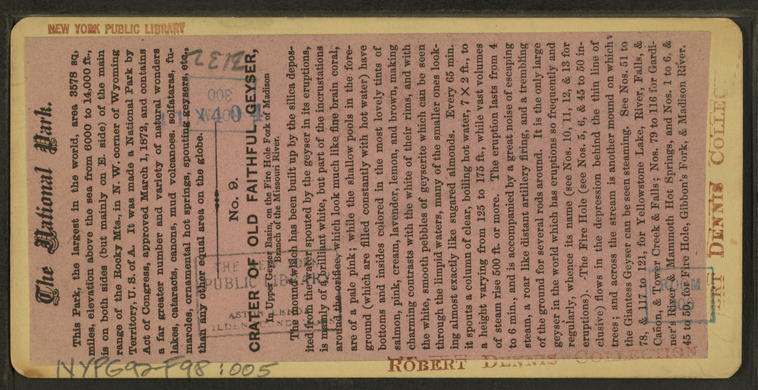 NEW YORK PUBLIC LIBRARY
The National Park.
This Park, the largest in the world, area 3578 sq.
miles, elevation above the sea from 6000 to 14,000 ft.,
is on both sides (but mainly on E. side) of the main
range of the Rocky Mts., in N. W. corner of Wyoming
Territory, U. S. of A. It was made a National Park by
Act of Congress, approved March 1, 1872, and contains
a far greater number and variety of natural wonders
lakes, cataracts, canons, mud volcanoes, solfataras, fu-
maroles, ornamental hot springs, spouting geysers, etc.,
than any other equal area on the globe.
No. 9.
CRATER OF OLD FAITHFUL GEYSER,
In Upper Geyser Basin, on the Fire Hole Fork of Madison
Branch of the Missouri River.
The mound which has been built up by the silica depos-
ited from the water spouted by the geyser in its eruptions,
is mainly of a brilliant white, but part of the incrustations
around the orifice, which look much like fine brain coral,
are of a pale pink; while the shallow pools in the fore-
ground (which are filled constantly with hot water) have
bottoms and insides colored in the most lovely tints of
salmon, pink, cream, lavender, lemon, and brown, making
charming contrasts with the white of their rims, and with
the white, smooth pebbles of geyserite which can be seen
through the limpid waters, many of the smaller ones look-
ing almost exactly like sugared almonds. Every 65 min.
it spouts a column of clear, boiling hot water, 7 × 2 ft., to
a height varying from 125 to 175 ft., while vast volumes
of steam rise 500 ft. or more. The eruption lasts from 4
to 6 min., and is accompanied by a great noise of escaping
steam, a roar like distant artillery firing, and a trembling
of the ground for several rods around. It is the only large
geyser in the world which has eruptions so frequently and
regularly, whence its name (see Nos. 10, 11, 12, & 13 for
eruptions). The Fire Hole (see Nos. 5, 6, & 45 to 50 in-
clusive) flows in the depression behind the thin line of
trees; and across the stream is another mound on which
the Giantess Geyser can be seen steaming. See Nos. 51 to
78, & 117 to 121, for Yellowstone Lake, River, Falls, &
Cañon, & Tower Creek & Falls; Nos. 79 to 116 for Gardi-
ner's River & Mammoth Hot Springs, and Nos. 1 to 6, &
45 to 50, for Fire Hole, Gibbon's Fork, & Madison River.
2132
X404
THE
PUBLIC
ROBERT DENNIS COLLECTION
RT DENNIS COLLECT
NYPG92-F98:005